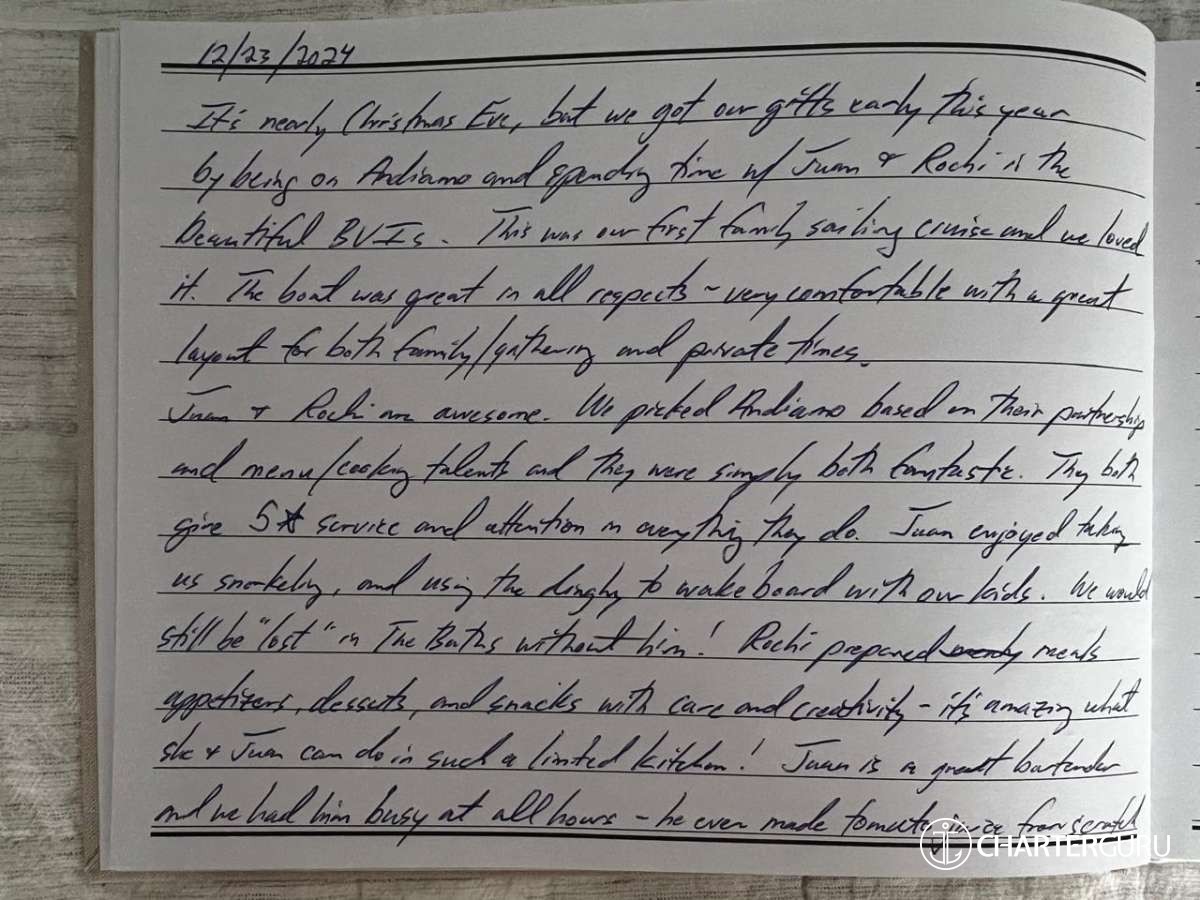 12/23/2024
It's nearly Christmas Eve, but we got our gifts early this year
by being on Andiamo and spending time w/ Juan & Rochi is the
beautiful BVIs. This was our first family sailing cruise and we loved
it. The boat was great in all respects - very comfortable with a great
layout for both family/gathering and private times.
Juan & Rochi are awesome. We picked Andiamo based on their partnership
and menu/cooking talents and they were simply both fantastic. They both
give 5☆ service and attention in everything they do. Juan enjoyed taking
us snorkeling, and using the dinghy to wakeboard with our kids. We would
still be "lost" in The Baths without him! Rochi prepared meals
appetizers, desserts, and snacks with care and creativity - it's amazing what
she & Juan can do in such a limited kitchen! Juan is a great bartender
and we had him busy at all hours - he even made tomato juice from scratch
CHARTERGURU